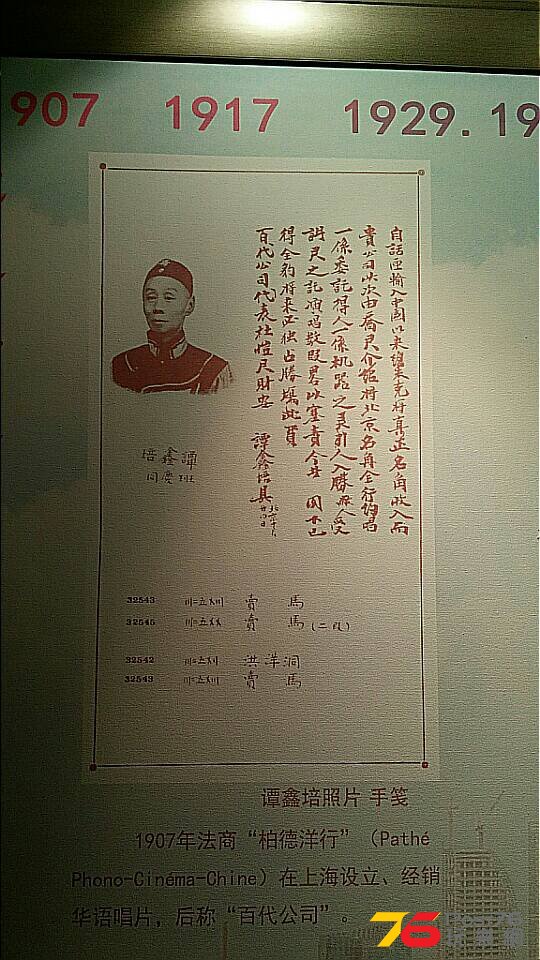 907 1917 1929.19
自話匣輸入中國以來 未克將真正名角收入而
貴公司此次由喬 介紹將北京名角全行約唱
一係委託得人一係机器之 引人入勝 人受
之託演唱數段畧以塞責今 已
得全豹將来必独占勝塲此
百代公司代表杜 財安 譚鑫培具
譚鑫培
同慶班
32543 賣馬
32545 賣馬(二段)
32542 洪洋洞
32543 賣馬
谭鑫培照片 手笺
1907年法商“柏德洋行”（Pathé
Phono-Cinéma-Chine）在上海设立、经销
华语唱片，后称“百代公司”。
76